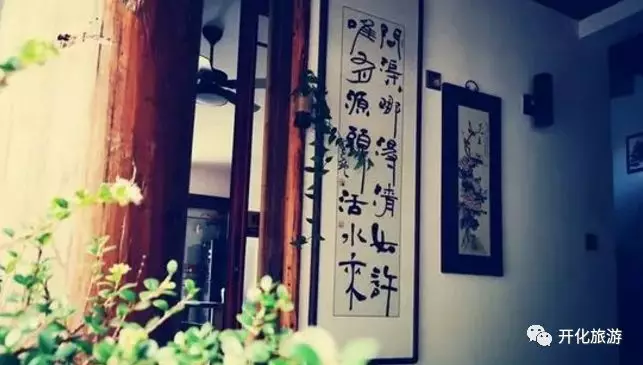 問渠哪得清如許
唯有源頭活水來
开化旅游